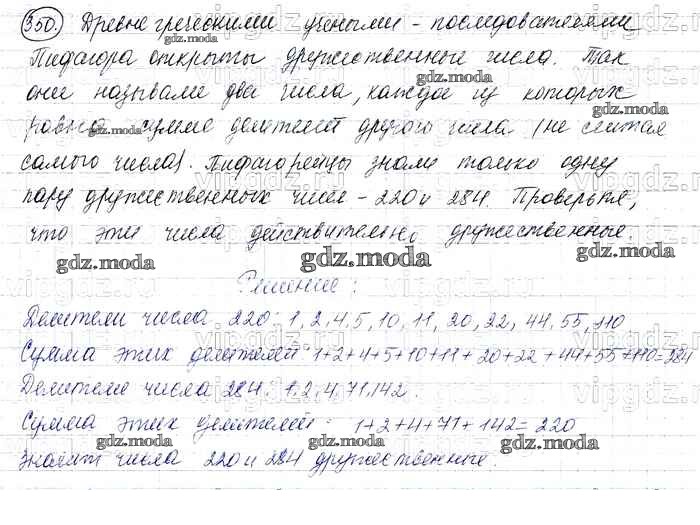 350. Древне греческими учеными - последователями
Пифагора открыты дружественные числа. Так
они называли два числа, каждое из которых
равно сумме делителей другого числа (не считая
самого числа). Пифагорейцы знали только одну
пару дружественных чисел - 220 и 284. Проверьте,
что эти числа действительно дружественные.
Решение:
Делители числа 220: 1, 2, 4, 5, 10, 11, 20, 22, 44, 55, 110
Сумма этих делителей: 1+2+4+5+10+11+20+22+44+55+110=284
Делители числа 284: 1, 2, 4, 71, 142.
Сумма этих делителей: 1+2+4+71+142=220
Значит числа 220 и 284 дружественные.